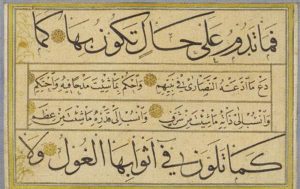 فما تدوم على حال تكون بها كما
دع ما ادعته النصارى في نبيهم واحكم بما شئت مدحا فيه واحتكم
وانسب الى ذاته ما شئت من شرف وانسب الى قدره ما شئت من عظم
كما تلون في اثوابها الغول ولا